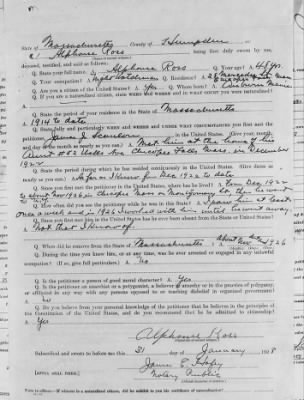 State of Massachusetts County of Hampden
Alphonse Ross being first duly sworn by me,
deposed, testified, and said as follows:
Q. State your full name. Alphonse Ross Q. Your age? 48 yrs.
Q. Occupation? Night Watchman Q. Residence? 28
Q. Are you a citizen of the United States? A. Yes Q. Where born? A. Auburn Maine
Q. If you are a naturalized citizen, state when and in what court you were naturalized?
Q. State the period of your residence in the State of Massachusetts
1914 to date
Q. State fully and particularly when and where and under what circumstances you first met the
petitioner, in the United States. (Give year, month,
and day of the month as nearly as you can.) A. Met him at the home of his
Aunt #52 Chicopee Falls Mass in December
1924
Q. State the period during which he has resided continuously in the United States. (Give dates as
nearly as you can.) A. As far as I know from Dec 1924 to date
Q. Since you first met the petitioner in the United States, where has he lived? A. From Dec 1924
to about Nov 1926 in Chicopee Mass on Montgomery St he went
to N.Y.
Q. How often did you see the petitioner while he was in this State? A. I saw him at least
once a week and in 1926 I worked with him until he went away.
Q. Since you first met him in the United States has he ever been absent from the United States?
Not that I know of.
Q. When did he remove from the State of Massachusetts? A. About Nov 1926
Q. During the time you knew him, or at any time, was he ever arrested or engaged in any unlawful
occupation? (If so, give full particulars.) A. No
Q. Is the petitioner a person of good moral character? A. Yes
Q. Is the petitioner an anarchist or a polygamist, a believer of anarchy or in the practice of polygamy,
or affiliated in any way with any persons opposed to or teaching disbelief in organized government?
A. No
Q. Do you believe from your personal knowledge of the petitioner that he believes in the principles
of the Constitution of the United States, and do you recommend that he be admitted to citizenship?
A. Yes
Alphonse Ross
Subscribed and sworn to before me this 31 day of January 1928
James E.
Notary Public